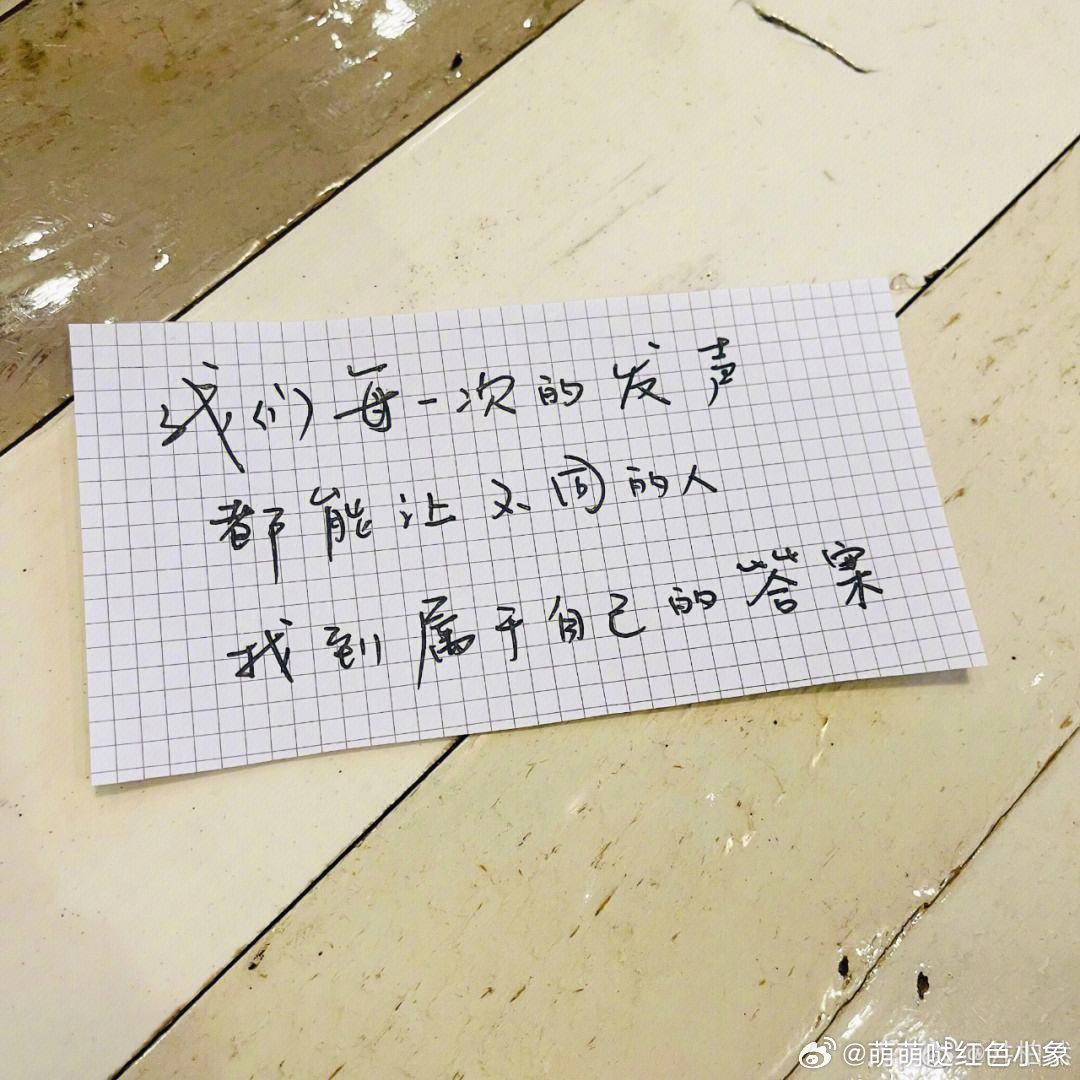 我们每一次的发声
都能让不同的人
找到属于自己的答案
@萌萌哒红色小象